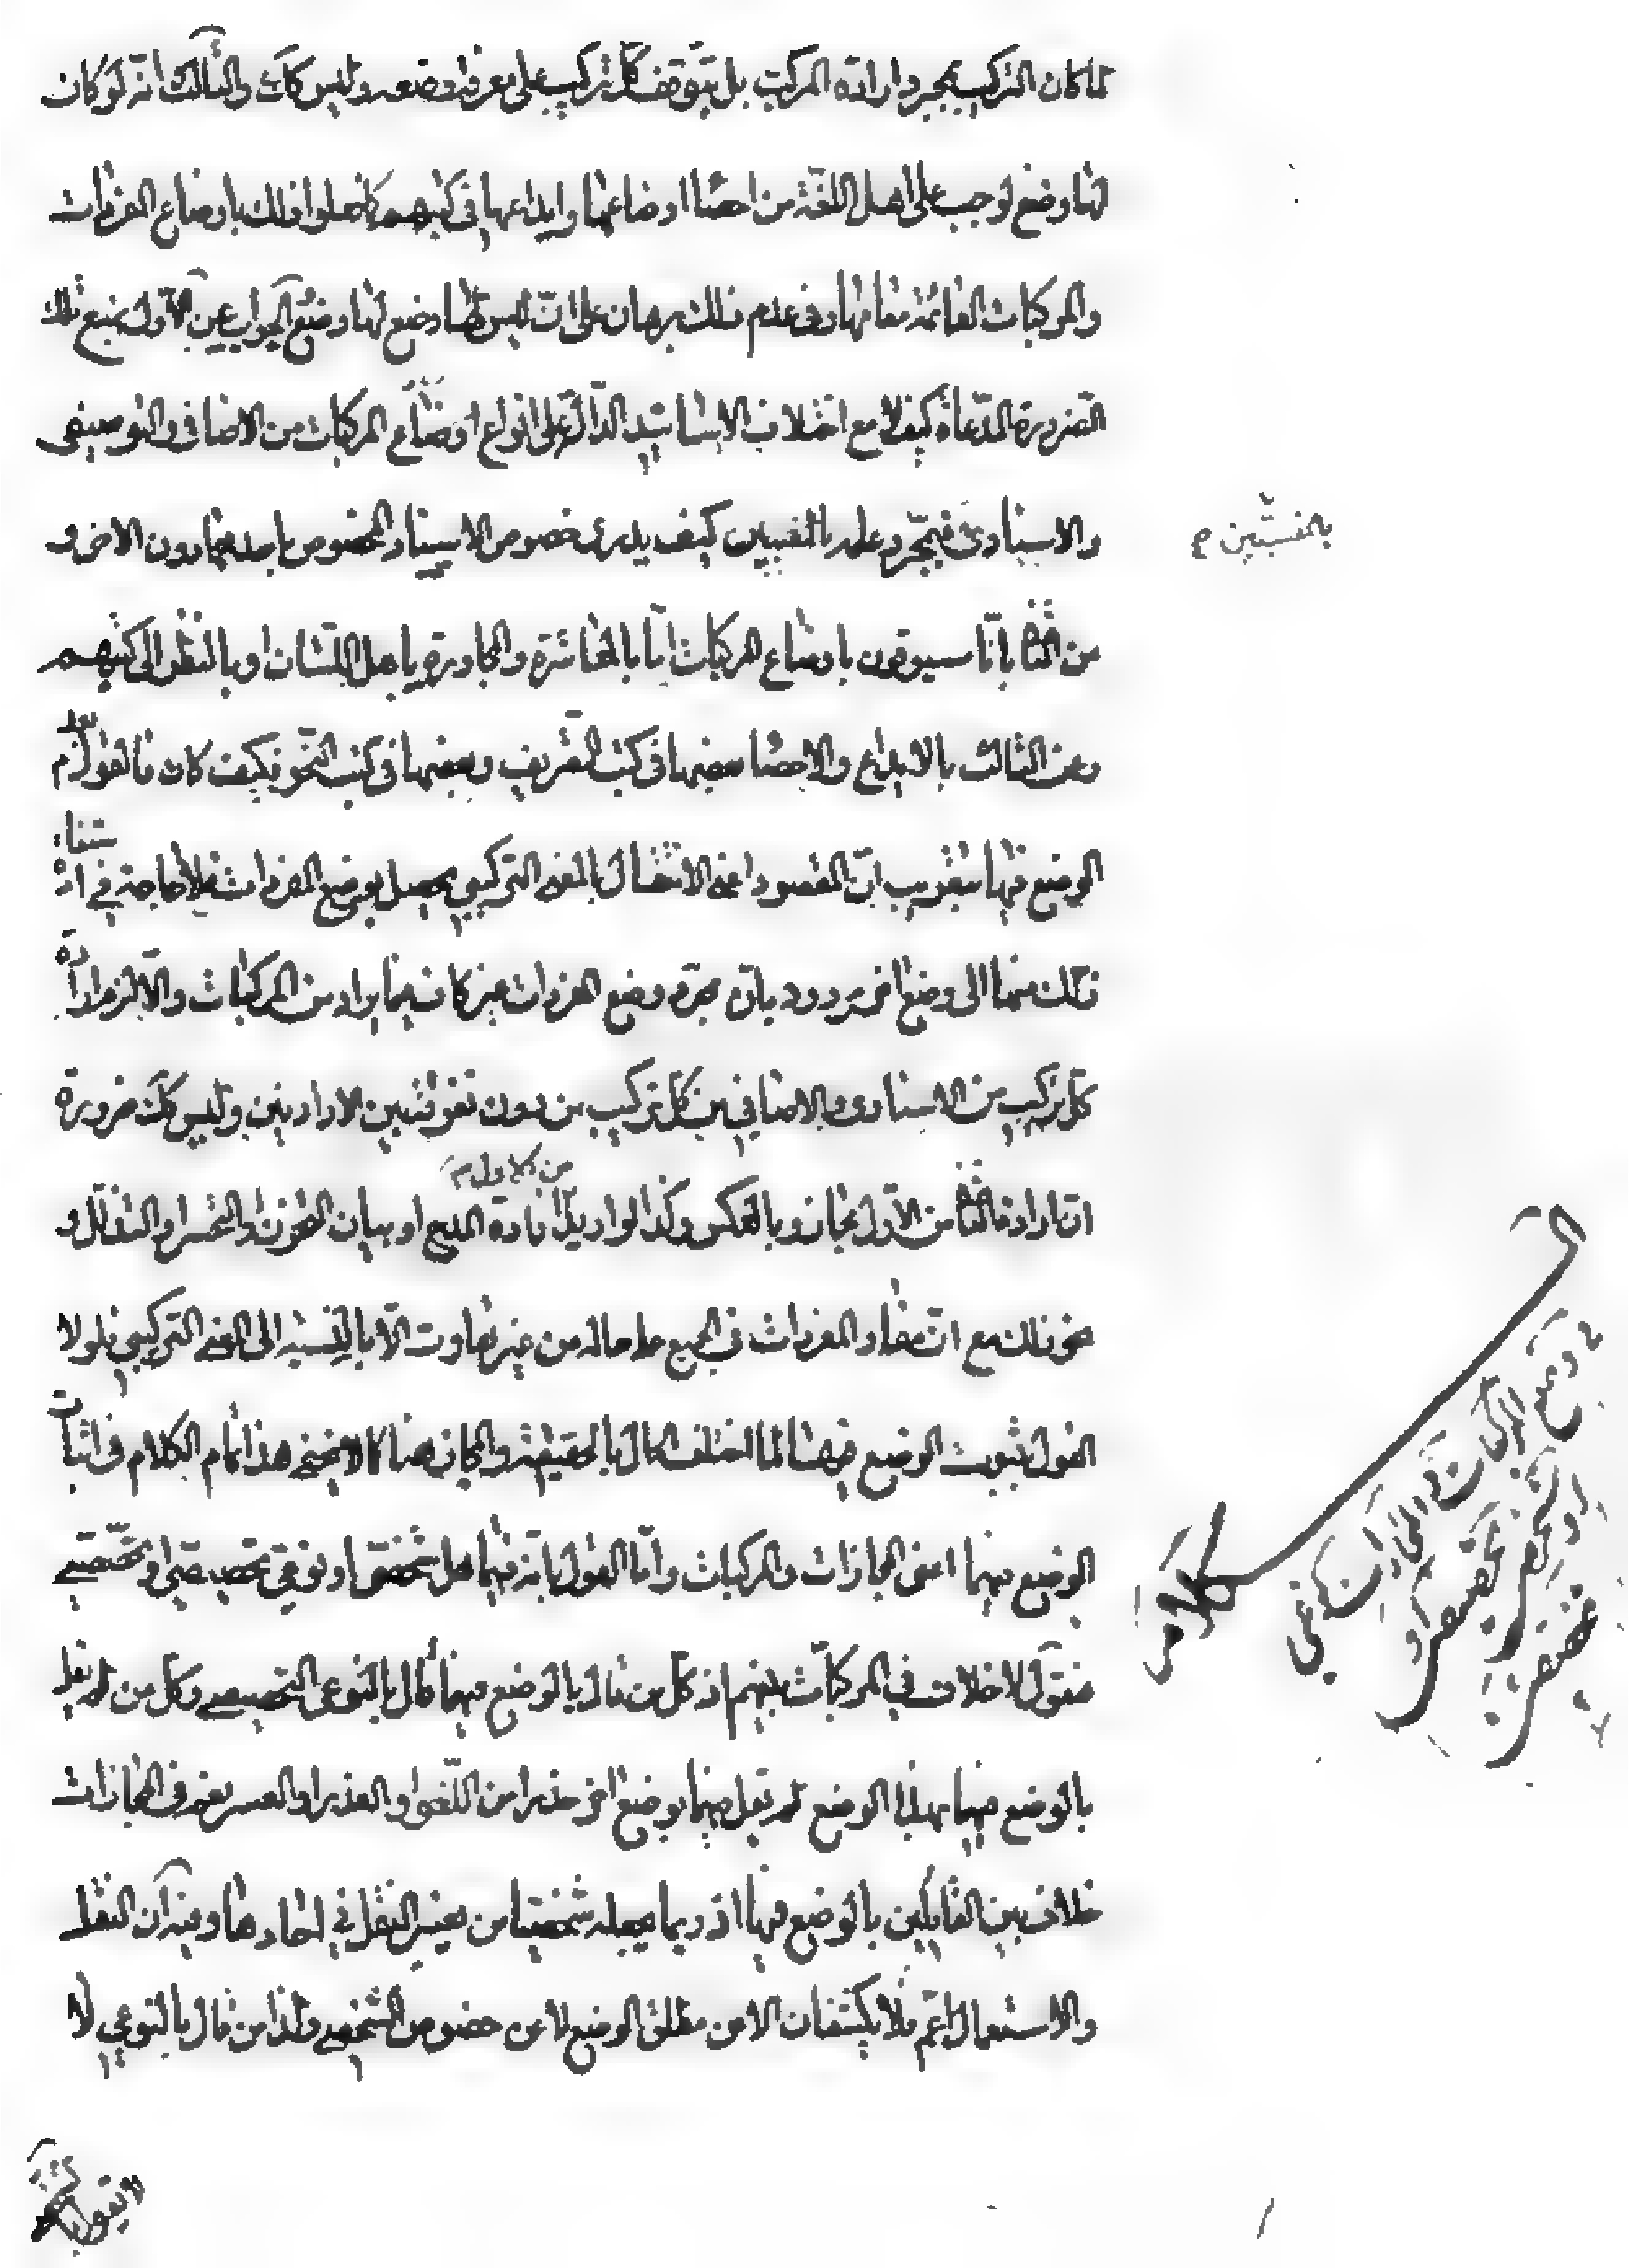 لما كان التركيب بمجرد ارادة المركب بل يتوقف كل تركيب على معرفة وضعه وليس كك والثالث انه لو كان
لها وضع لوجب على اهل اللغة من احصاء اوضاعها وايداعها في كتبهم كما فعلوا ذلك باوضاع المفردات
والمركبات القائمة مقامها وفي عدم ذلك برهان على ان ليس لها وضع والجواب عن الاول بمنع تلك
الضرورة المدعاة كيف لا مع اختلاف الاسانيد الدالة على انواع اوضاع المركبات من الاضافي والتوصيفي
والاسنادي فبمجرد علمه كيف يدري خصوص الاسناد المخصوص باحدهما دون الاخر و
بالمنتسبين م
من الثاني بانا مسبوقون باوضاع المركبات اما بالمعاشرة والمجاورة باهل اللسان او بالنظر الى كتبهم
وعن الثالث بالايداع والاحصاء بعضها في كتب التصريف وبعضها في كتب النحو فكيف كان فالقول بعدم
الوضع فيها بتقريب ان المقصود اعني الانتقال بالمعنى التركيبي يحصل بوضع المفردات فلا حاجة في استفادة
ذلك منها الى وضع اخر مردود بان مجرد وضع المفردات غير كاف فيما يراد من المركبات والا لزم ارادة
كل تركيب من الاسنادي والاضافي من كل تركيب من دون تفرقة بين الارادتين وليس كك ضرورة
ان ارادة الثاني من الاول مجاز وبالعكس وكذا لو اريد افادة المدح او بيان الحزن او التحسر او التفأل و
من الاول م
نحو ذلك مع ان مفاد المفردات في الجميع على حاله من غير تفاوت الا بالنسبة الى المعنى التركيبي فلولا
القول بثبوت الوضع فيها لما اختلف الحال بالحقيقة والمجاز هنا كما لا يخفى هذا تمام الكلام في اثبات
الوضع فيهما اعنى المجازات والمركبات واما القول بانه فيهما هل شخصي او نوعي تخصيصي او تخصصي
فنقول لا خلاف في المركبات بينهم اذ كل من قال بالوضع فيها قال بالنوعي التخصيصي وكل من لم يقل
بالوضع فيها بهذا الوضع لم يقل فيها بوضع اخر حذرا من اللغو او العذر او العسر نعم في المجازات
خلاف بين القائلين بالوضع فيها اذ ربما يجعله شخصيا من يعتبر النقل في احادها وفيه ان النقل
والاستعمال اعم فلا يكشفان الا عن مطلق الوضع لا عن خصوص الشخصي ولذا من قال بالنوعي لا
الكلام
وضع المركبات والمجازات